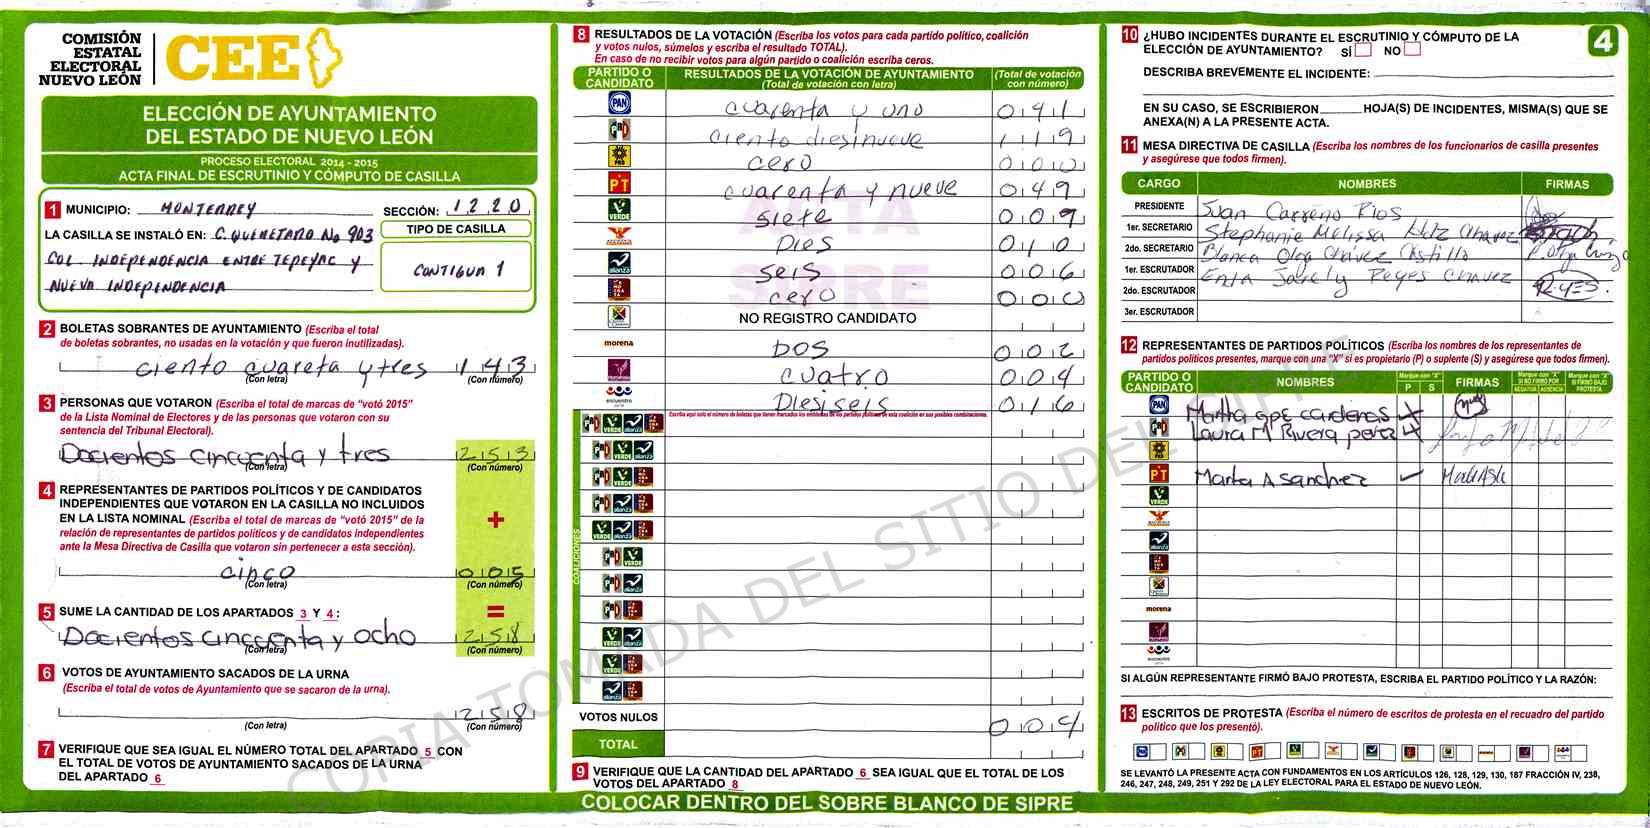 COMISIÓN
ESTATAL
ELECTORAL
NUEVO LEÓN
CEE
ELECCIÓN DE AYUNTAMIENTO
DEL ESTADO DE NUEVO LEÓN
PROCESO ELECTORAL 2014 - 2015
ACTA FINAL DE ESCRUTINIO Y CÓMPUTO DE CASILLA
1 MUNICIPIO: MONTERREY SECCIÓN: 1 2 2 0
LA CASILLA SE INSTALÓ EN: C. QUERETARO No 903
COL. INDEPENDENCIA ENTRE TEPEYAC Y
NUEVA INDEPENDENCIA
TIPO DE CASILLA
CONTIGUA 1
2 BOLETAS SOBRANTES DE AYUNTAMIENTO (Escriba el total
de boletas sobrantes, no usadas en la votación y que fueron inutilizadas).
ciento cuareta y tres 1 4 3
(Con letra) (Con número)
3 PERSONAS QUE VOTARON (Escriba el total de marcas de “votó 2015”
de la Lista Nominal de Electores y de las personas que votaron con su
sentencia del Tribunal Electoral).
Docientos cincuenta y tres 2 5 3
(Con letra) (Con número)
4 REPRESENTANTES DE PARTIDOS POLÍTICOS Y DE CANDIDATOS
INDEPENDIENTES QUE VOTARON EN LA CASILLA NO INCLUIDOS
EN LA LISTA NOMINAL (Escriba el total de marcas de “votó 2015” de la
relación de representantes de partidos políticos y de candidatos independientes
ante la Mesa Directiva de Casilla que votaron sin pertenecer a esta sección).
+
cinco 0 0 5
(Con letra) (Con número)
5 SUME LA CANTIDAD DE LOS APARTADOS 3 Y 4 : =
Docientos cincuenta y ocho 2 5 8
(Con letra) (Con número)
6 VOTOS DE AYUNTAMIENTO SACADOS DE LA URNA
(Escriba el total de votos de Ayuntamiento que se sacaron de la urna).
2 5 8
(Con letra) (Con número)
7 VERIFIQUE QUE SEA IGUAL EL NÚMERO TOTAL DEL APARTADO 5 CON
EL TOTAL DE VOTOS DE AYUNTAMIENTO SACADOS DE LA URNA
DEL APARTADO 6
8 RESULTADOS DE LA VOTACIÓN (Escriba los votos para cada partido político, coalición
y votos nulos, súmelos y escriba el resultado TOTAL).
En caso de no recibir votos para algún partido o coalición escriba ceros.
PARTIDO O CANDIDATO RESULTADOS DE LA VOTACIÓN DE AYUNTAMIENTO (Total de votación con letra) (Total de votación con número)
PAN cuarenta y uno 0 4 1
PRD ciento diesinueve 1 1 9
PRD cero 0 0 0
PT cuarenta y nueve 0 4 9
VERDE siete 0 0 9
Dies 0 1 0
alianza seis 0 0 6
cero 0 0 0
NO REGISTRO CANDIDATO
morena DOS 0 0 2
cuatro 0 0 4
encuentro Diesiseis 0 1 6
Escriba aquí solo el número de boletas que tienen marcados los emblemas de los partidos políticos de esta coalición en sus posibles combinaciones.
COALICIONES
VOTOS NULOS 0 0 4
TOTAL
9 VERIFIQUE QUE LA CANTIDAD DEL APARTADO 6 SEA IGUAL QUE EL TOTAL DE LOS
VOTOS DEL APARTADO 8
COLOCAR DENTRO DEL SOBRE BLANCO DE SIPRE
ACTA
SIPRE
COPIA TOMADA DEL SITIO DEL SIPRE
10 ¿HUBO INCIDENTES DURANTE EL ESCRUTINIO Y CÓMPUTO DE LA
ELECCIÓN DE AYUNTAMIENTO? SÍ NO
4
DESCRIBA BREVEMENTE EL INCIDENTE:
EN SU CASO, SE ESCRIBIERON HOJA(S) DE INCIDENTES, MISMA(S) QUE SE
ANEXA(N) A LA PRESENTE ACTA.
11 MESA DIRECTIVA DE CASILLA (Escriba los nombres de los funcionarios de casilla presentes
y asegúrese que todos firmen).
CARGO NOMBRES FIRMAS
PRESIDENTE Juan Carreño Rios
1er. SECRETARIO Stephanie Melissa Hdz Chavez
2do. SECRETARIO Blanca Olga Chávez Castillo
1er. ESCRUTADOR Enta Jarely Reyes Chavez
2do. ESCRUTADOR
3er. ESCRUTADOR
12 REPRESENTANTES DE PARTIDOS POLÍTICOS (Escriba los nombres de los representantes de
partidos políticos presentes, marque con una “X” si es propietario (P) o suplente (S) y asegúrese que todos firmen).
PARTIDO O CANDIDATO NOMBRES Marque con “X” P S FIRMAS Marque con “X” SI NO FIRMÓ POR NEGATIVA AUSENCIA Marque con “X” SI FIRMÓ BAJO PROTESTA
PAN Martha Gpe cardenas X
Laura M Rivera perez X
PT Marta A Sanchez
VERDE
morena
SI ALGÚN REPRESENTANTE FIRMÓ BAJO PROTESTA, ESCRIBA EL PARTIDO POLÍTICO Y LA RAZÓN:
13 ESCRITOS DE PROTESTA (Escriba el número de escritos de protesta en el recuadro del partido
político que los presentó).
SE LEVANTÓ LA PRESENTE ACTA CON FUNDAMENTOS EN LOS ARTÍCULOS 126, 128, 129, 130, 187 FRACCIÓN IV, 238,
246, 247, 248, 249, 251 Y 292 DE LA LEY ELECTORAL PARA EL ESTADO DE NUEVO LEÓN.